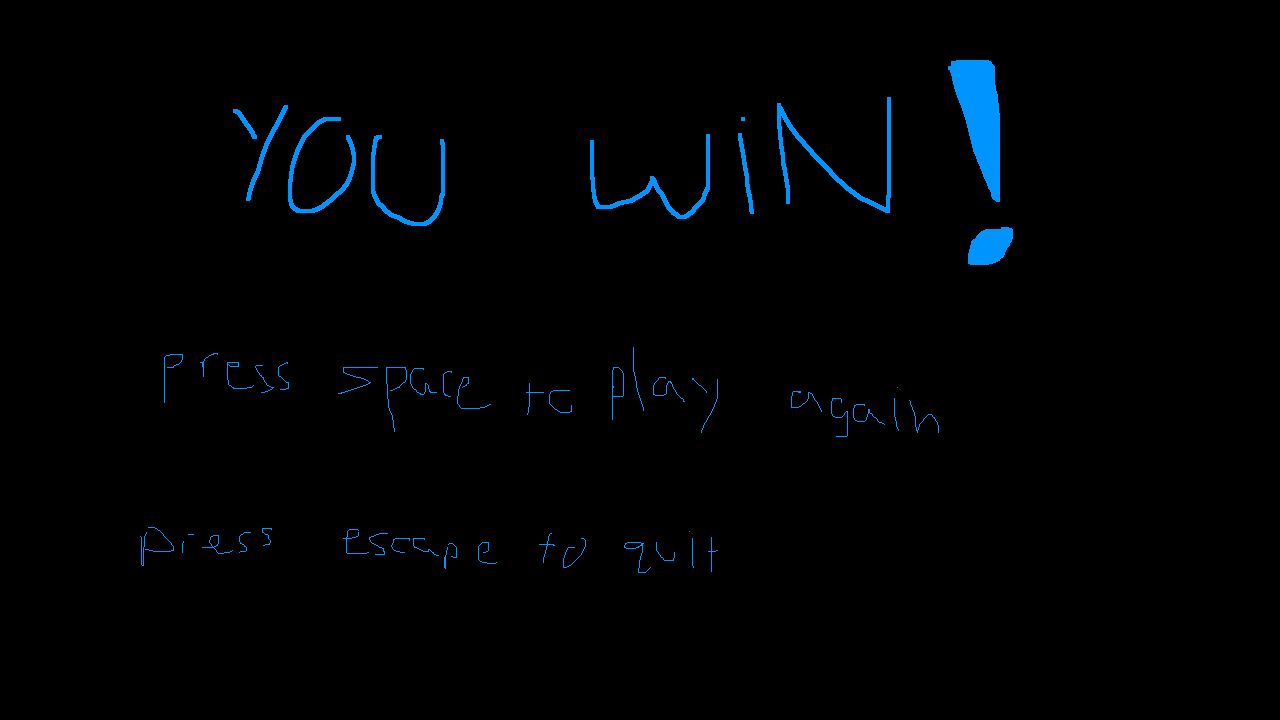 YOU WiN!
press space to play again
press escape to quit